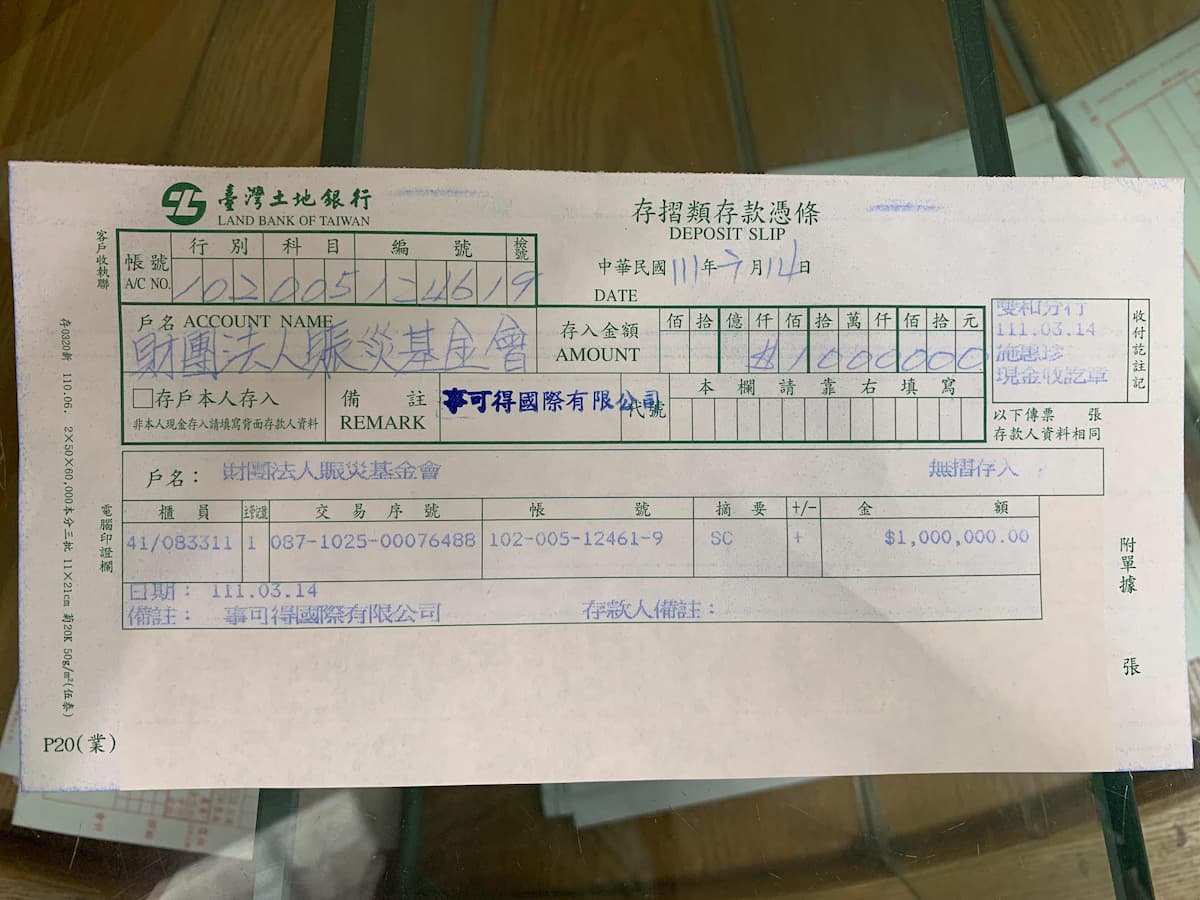 臺灣土地銀行
LAND BANK OF TAIWAN
存摺類存款憑條
DEPOSIT SLIP
客戶收執聯
帳號
A/C NO.
行別 科目 編號 檢號
102 005 12461 9
中華民國111年3月14日
DATE
戶名 ACCOUNT NAME
財團法人賑災基金會
存入金額
AMOUNT
佰 拾 億 仟 佰 拾 萬 仟 佰 拾 元
$1000000
雙和分行
111.03.14
施惠珍
現金收訖章
收付訖註記
存戶本人存入
非本人現金存入請填寫背面存款人資料
備註
REMARK
事可得國際有限公司
代號
本欄請靠右填寫
以下傳票 張
存款人資料相同
戶名: 財團法人賑災基金會 無摺存入
櫃員 交易序號 帳號 摘要 +/- 金額
41/083311 1 087-1025-00076488 102-005-12461-9 SC + $1,000,000.00
日期: 111.03.14
備註: 事可得國際有限公司 存款人備註:
電腦印證欄
附單據 張
存0320新 110.06. 2×50×60,000本分三批 11×21cm 50g/m²
P20(業)